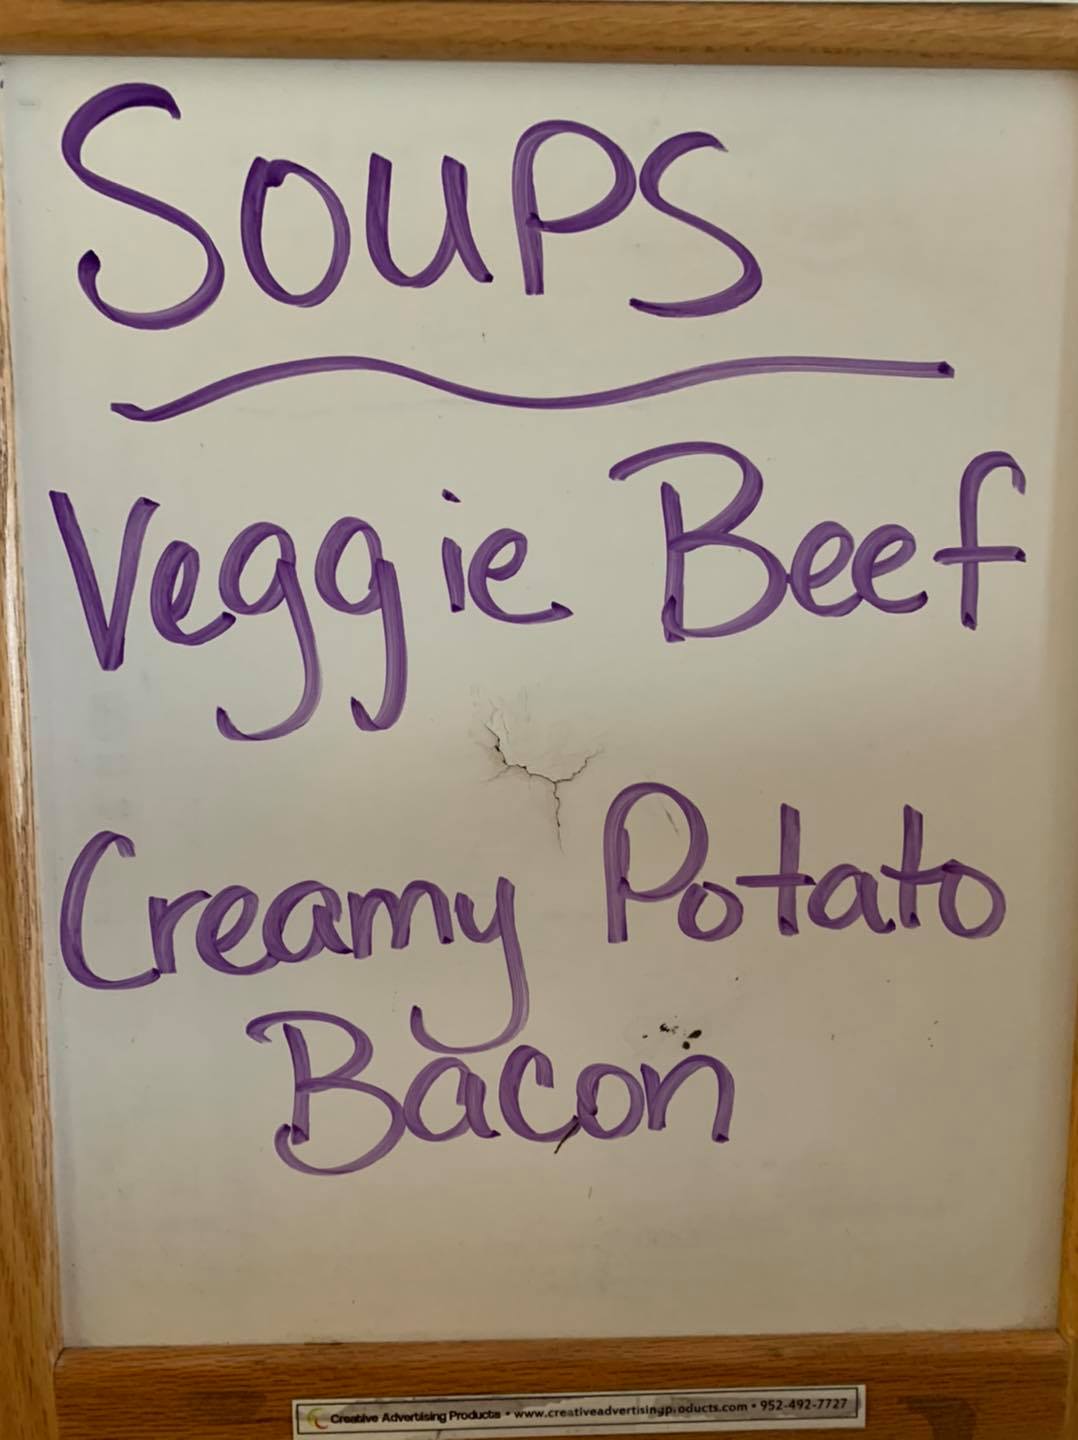 Soups
Veggie Beef
Creamy Potato
Bacon
Creative Advertising Products • www.creativeadvertisingproducts.com • 952-492-7727